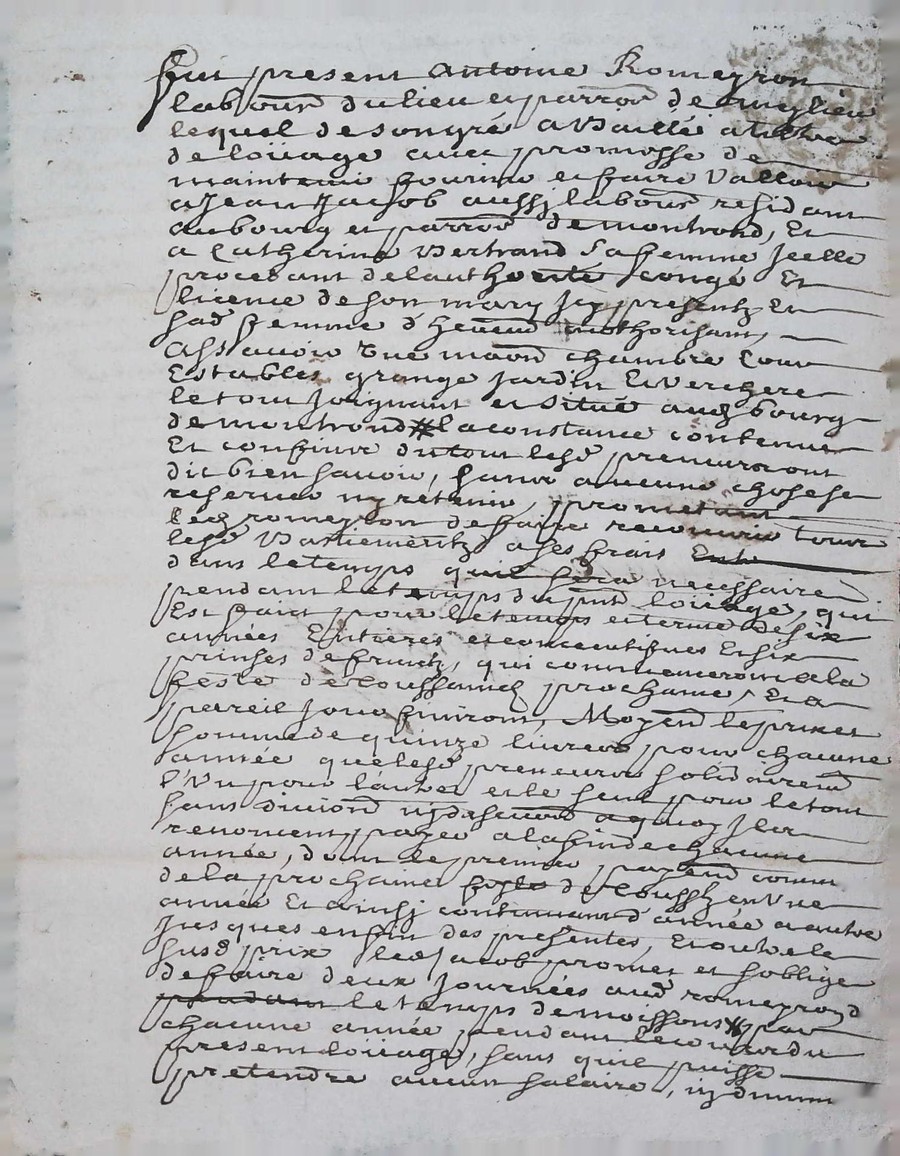 Fut present Antoine Romeyron
labour du lieu et parroe de
lequel de son gré a Baillé a tiltre
de loüage avec promesse de
maintenir fournir et faire Valloir
a Jean Jacob aussj labour residant
au bourg et parroe de montrond, Et
a Catherine Bertrand sa femme Jcelle
procedant de lauthorité congé Et
licence de son mary Jcy present Et
sad femme dheuemt authorisant,
Assavoir Une maon chambre Cour
Estables grange Jardin Et Verchere
le tout Joignant et situé aud bourg
de montrond # la constance contenue
Et confins du tout lesd preneurs ont
dit bien savoir, sans aucune chose se
reserver ny retenir, prometant
led romeyron de faire recouvrir tous
lesd Bastiements a ses frais
dans le temps quil sera necessaire
pendant le temps du pnt loüage, qui
Est fait pour le temps et terme de six
années Entieres et consecutifves Et six
prinses de fruitz, qui commenceront a la
feste de toussainctz prochaine, Et a
pareil Jour finiront, Moyent le prix et
somme de quinze livres pour chacune
année que lesd preneurs solidairemt
l'Un pour l'autre et le seul pour le tout
sans division ny a quoy Jls
renoncent, payer a la fin de chacune
année, dont le premier payemt comm
de la prochaine feste de toussts en Une
année Et ainsj continuant d'année a autre
Jusques en fin des presentes, Et outre le
susd prix led Jacob promet et soblige
de faire deux Journées aud romeyrond
pendant le temps de moissons # par
chacune année pendant le cours du
present loüage, sans quil puisse
pretendre aucun salaire, ny